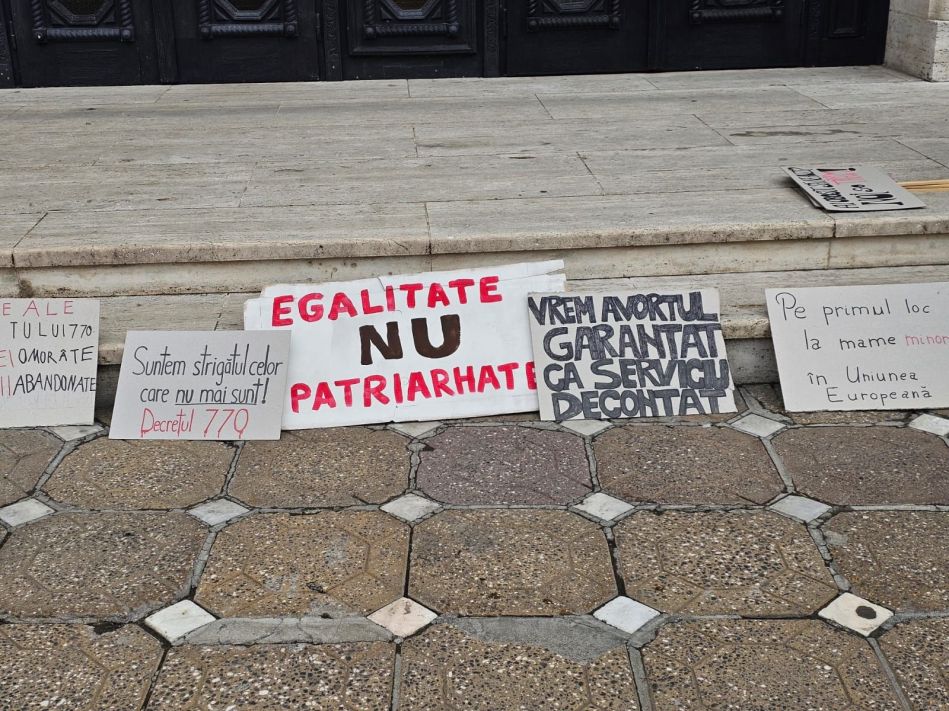 E ALE
TULUI 770
EI OMORÂTE
II ABANDONATE
Suntem strigătul celor
care nu mai sunt!
Decretul 770
EGALITATE
NU
PATRIARHATE
VREM AVORTUL
GARANTAT
CA SERVICIU
DECONTAT
Pe primul loc
la mame minor
în Uniunea
Europeană